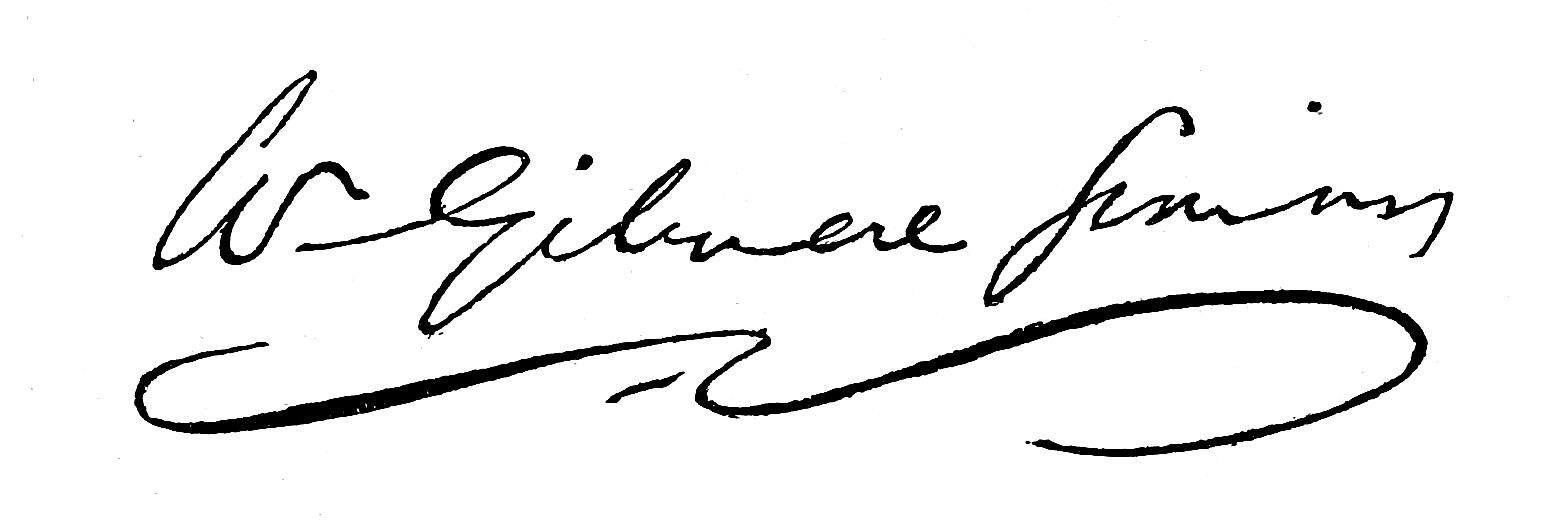 W. Gilmore Simms